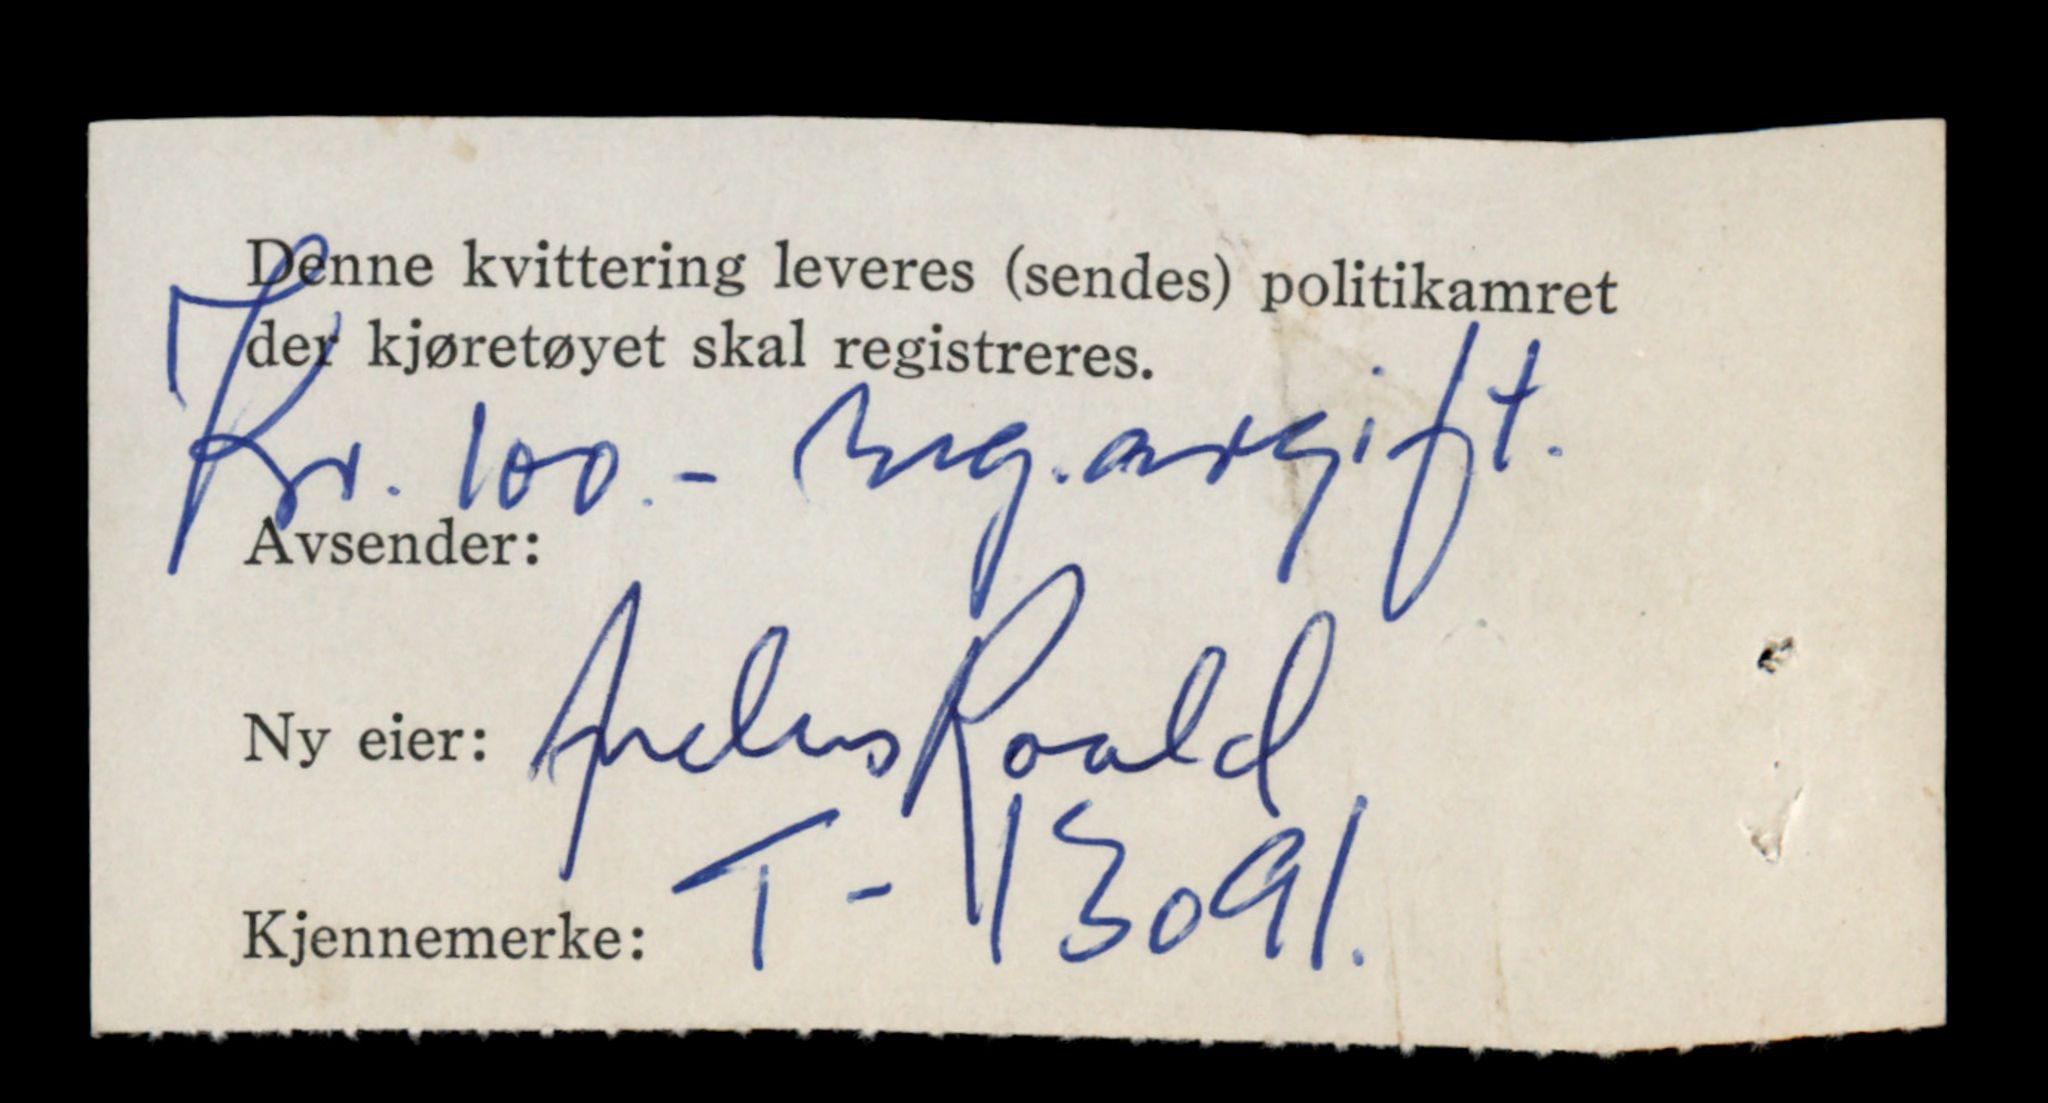 Denne kvittering leveres (sendes) politikamret
der kjøretøyet skal registreres.
Kr. 100.- reg.avgift.
Avsender:
Ny eier: Roald
Kjennemerke: T-13091.